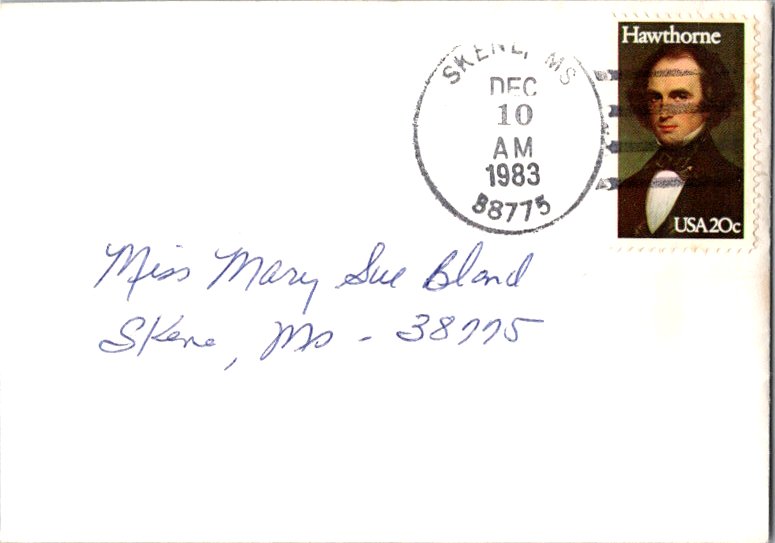 SKENE, MS
DEC
10
AM
1983
38775
Hawthorne
USA 20c
Miss Mary Sue Bland
Skene, Ms - 38775